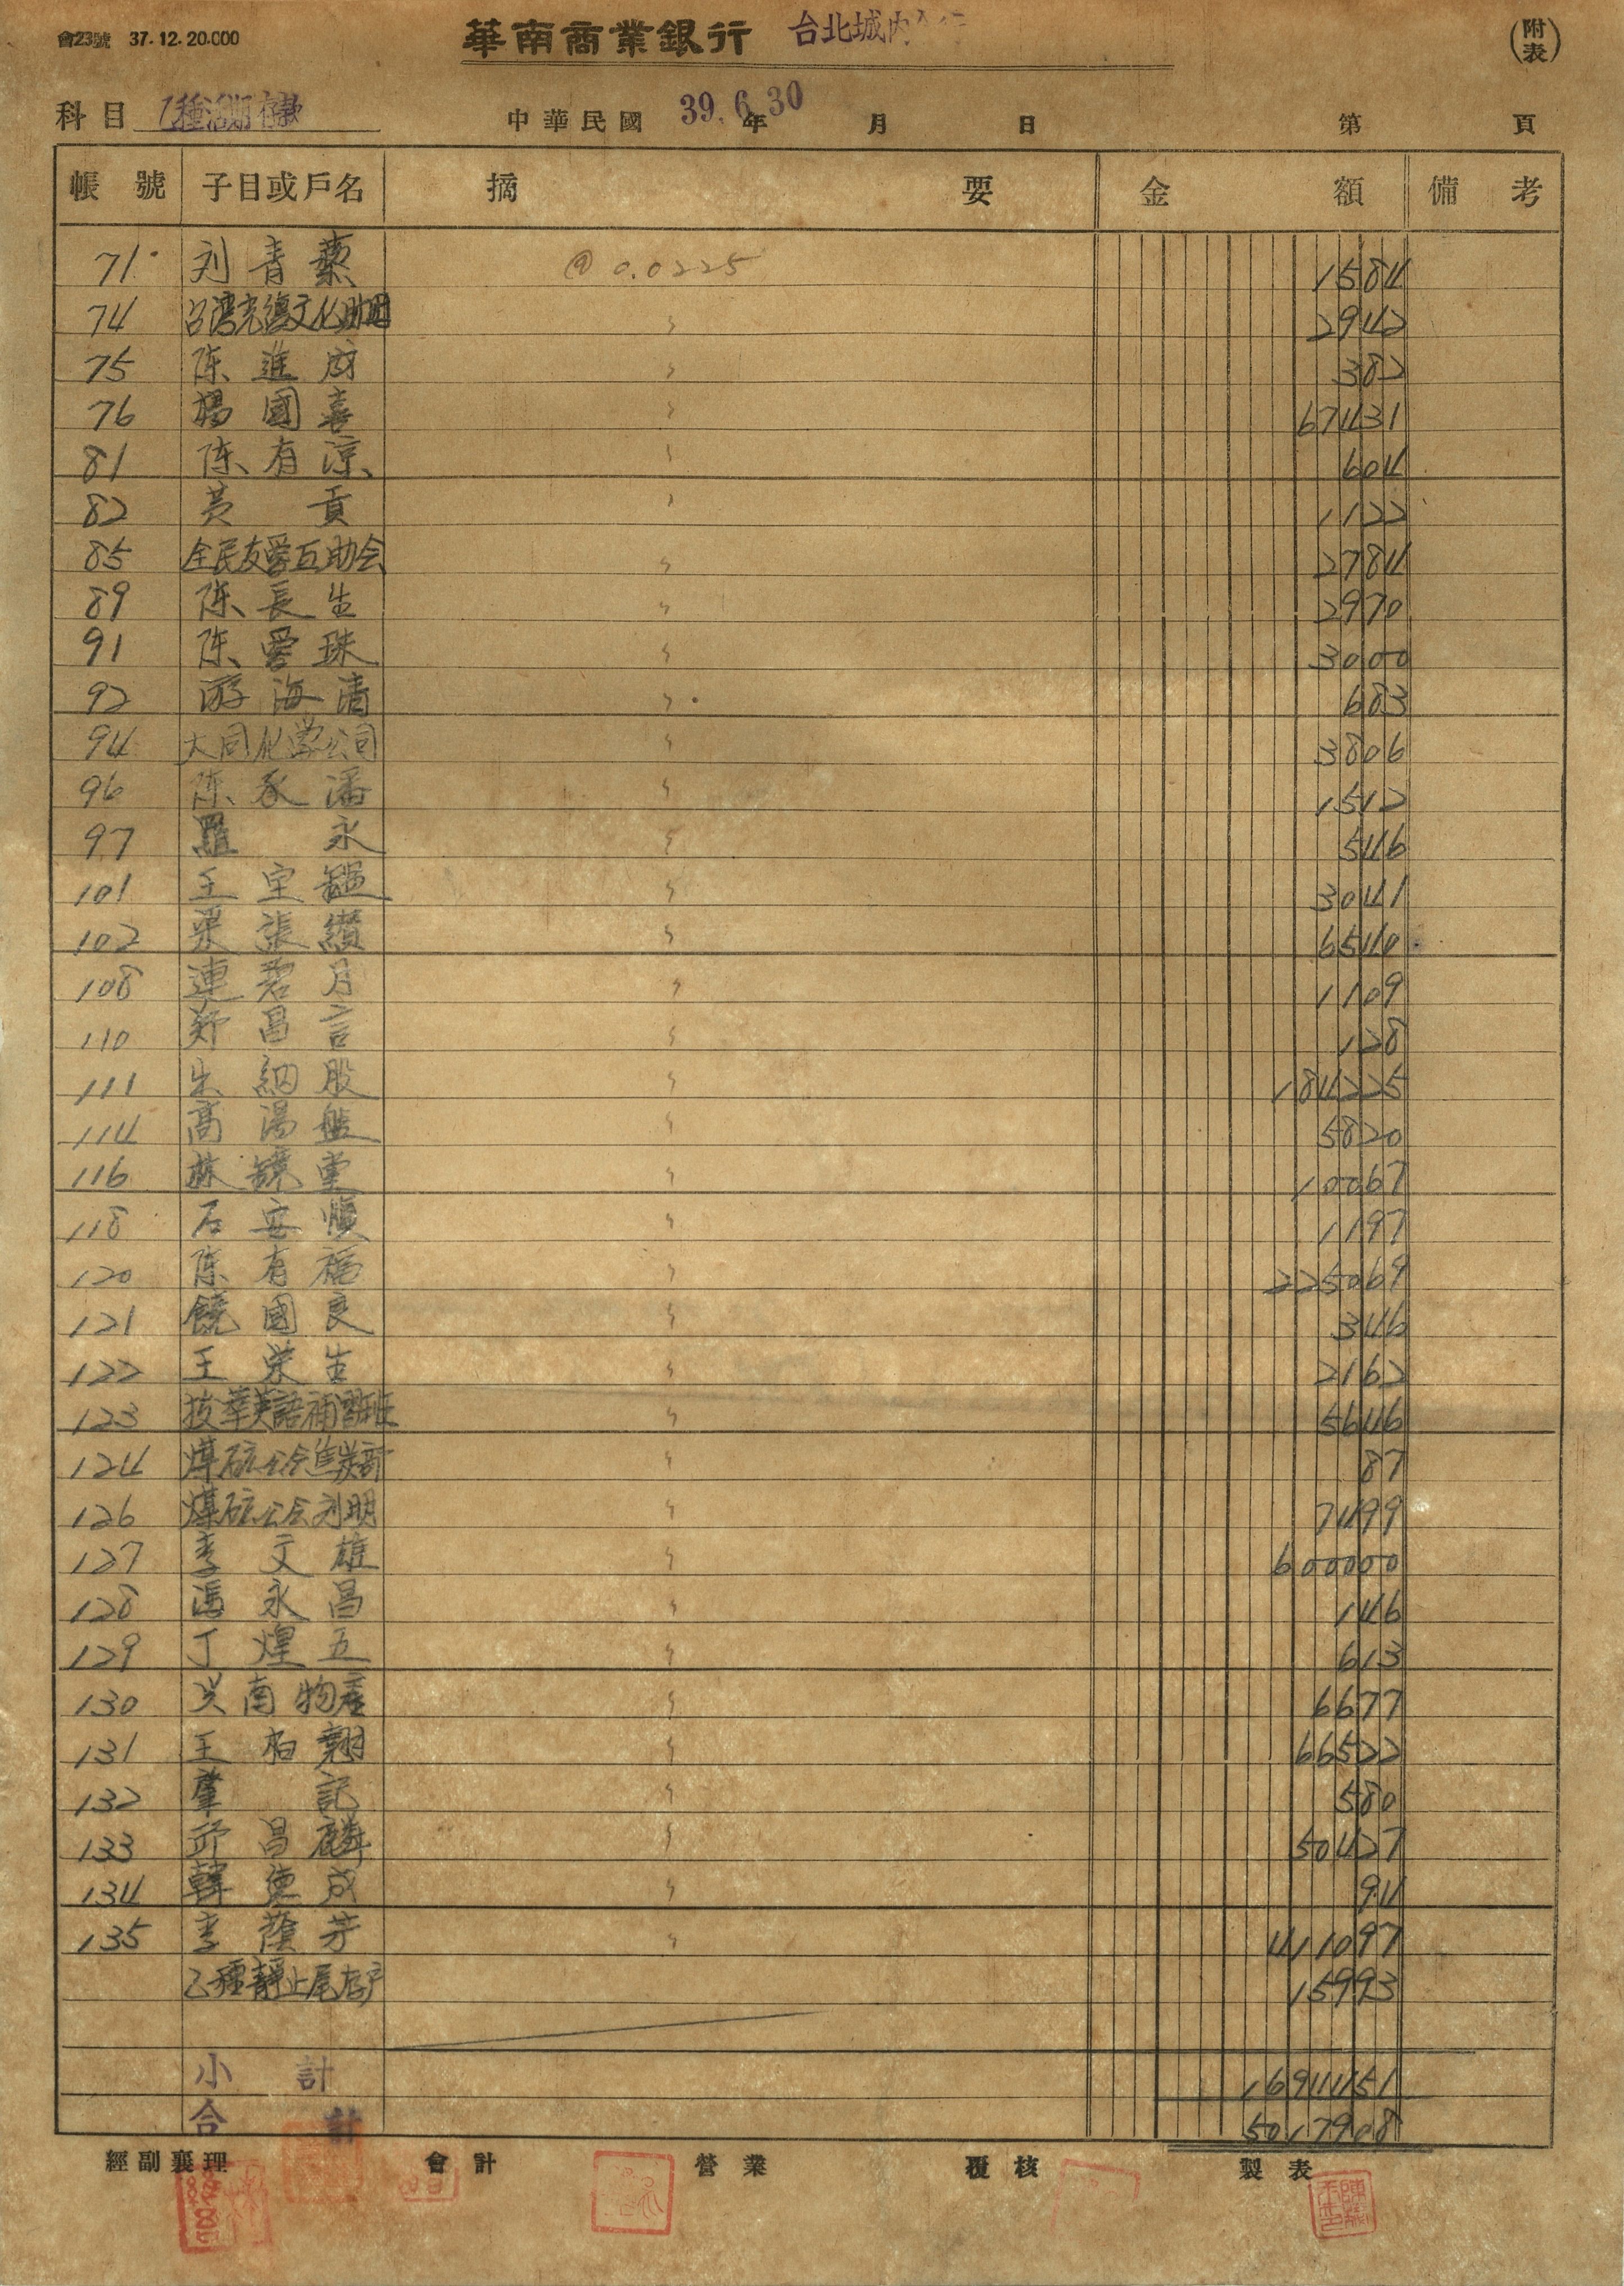 會23號 37.12.20.000 華南商業銀行 台北城內 (附表)
科目 乙種活期存款 中華民國 39.6.30 年 月 日 第 頁
帳號 子目或戶名 摘要 金額 備考
71 刘青藜 @ 0.0225 1584
74 台湾光復文化 2942
75 陈進成 〃 382
76 楊國喜 〃 67431
81 陈有諒 〃 604
82 黄貢 〃 1122
85 全民友爱互助会 〃 2784
89 陈長生 〃 2970
91 陈爱珠 〃 3000
92 游海清 〃 683
94 大同化学公司 〃 3806
96 陈承潘 〃 1512
97 羅永 〃 546
101 王宝 〃 3041
102 張纘 〃 6540
108 連碧月 〃 1109
110 鄭昌言 〃 128
111 朱細股 〃 184225
114 高湯盤 〃 5820
116 林 〃 10067
118 石安順 〃 1197
120 陈有福 〃 225069
121 饒國良 〃 346
122 王荣生 〃 2162
123 拔萃英語補習班 〃 5646
124 煤砿公会焦炭部 〃 87
126 煤砿公会刘明 〃 7499
127 李文雄 〃 600000
128 馮永昌 〃 146
129 丁煌五 〃 613
130 南物產 〃 6677
131 王柏翔 〃 66522
132 肇記 〃 580
133 邱昌麟 〃 50427
134 韓德成 〃 94
135 李蔭芳 〃 411097
乙種靜止尾存户 15993
小計 1694451
合計 5017908
經副襄理 會計 營業 覆核 製表